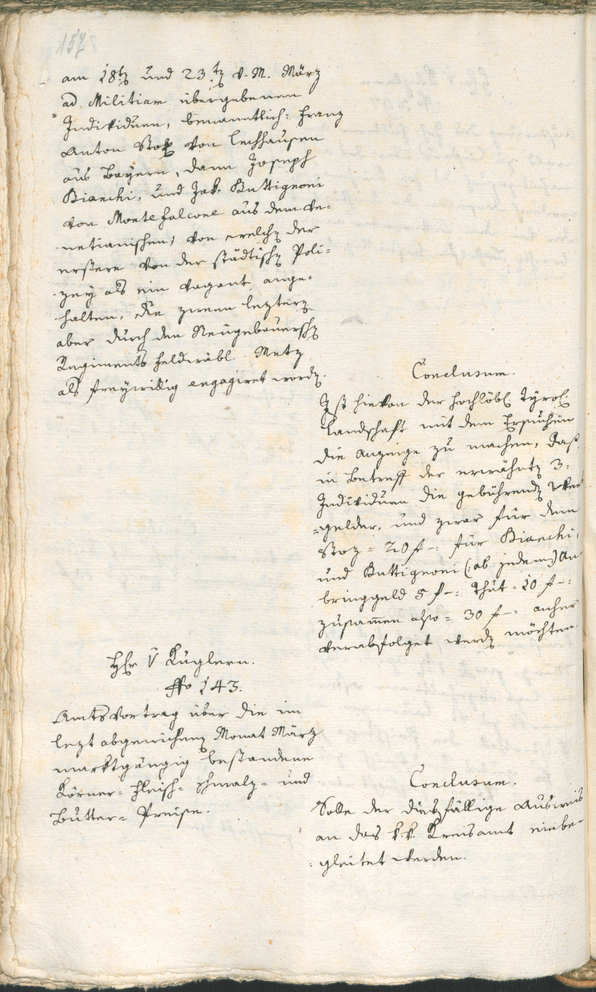 157
am 18tz und 23tz d. M. März
ad Militiam übergebenen
Individuen, benanntlich: Franz
Anton Stoz von Lechhausen
aus Bayern, dann Joseph
Bianchi, und Jak. Buttignoni
von Montefalcone aus dem Ve-
netianischen, von welchen der
erstere von der städtischen Poli-
zey als ein Vagant ange-
halten, die zween leztern
aber durch den Neugebauerschen
Regiments Feldwäbl Metz
als freywillig engagiret worden.
Conclusum.
Ist hievon der hochlöbl. Tyrol.
Landschaft mit dem Ersuchen
die Anzeige zu machen, daß
in Betreff der erwähnten 3.
Individuen die gebührenden
-gelder, und zwar für den
Stoz = 20 f -: für Bianchi,
und Buttignoni (: ab jedem :) An-
bringgeld 5 f -: thut = 10 f -:
zusammen also = 30 f -: anher
verabfolget werden möchten.
Hr. v Kuglern.
No 143.
Amtsvortrag über die im
lezt abgewichenen Monat März
marktgängig bestandene
Körner- Fleisch- Schmalz- und
Butter- Preise.
Conclusum.
Solle der diesfällige Ausweis
an das k. k. Kreisamt einbe-
gleitet werden.